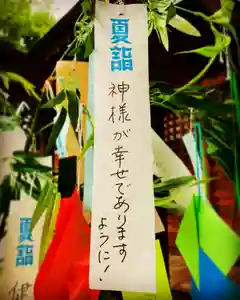 夏詣
神様が幸せであります
ように!
夏詣
夏詣
健